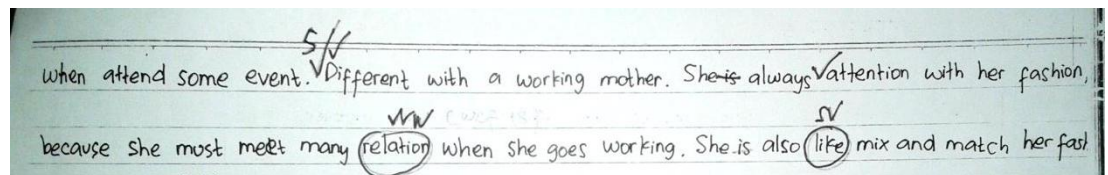 S/V
when attend some event. Different with a working mother. She is always attention with her fashion,
WW SV
because she must meet many relation when she goes working. She is also like mix and match her fash